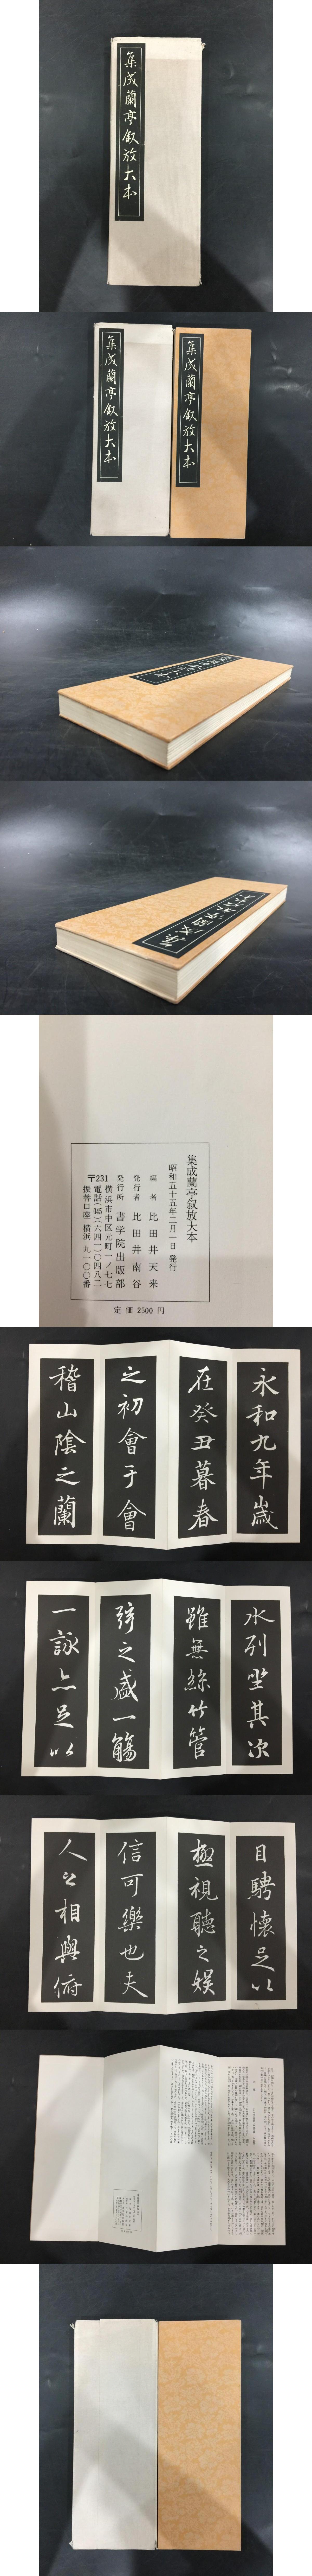 集成蘭亭叙放大本
集成蘭亭叙放大本
集成蘭亭叙放大本
集成蘭亭叙放大本
昭和五十五年二月一日 発行
編者 比田井天来
発行者 比田井南谷
発行所 書学院出版部
〒231 横浜市中区元町一ノ七七
電話(045)(六四一)〇四八二
振替口座 横浜 九一〇〇番
定価 2500 円
永和九年歳
在癸丑暮春
之初會于會
稽山陰之蘭
水列坐其次
雖無絲竹管
弦之盛一觴
一詠亦足以
目騁懷足以
極視聽之娯
信可樂也夫
人之相與俯